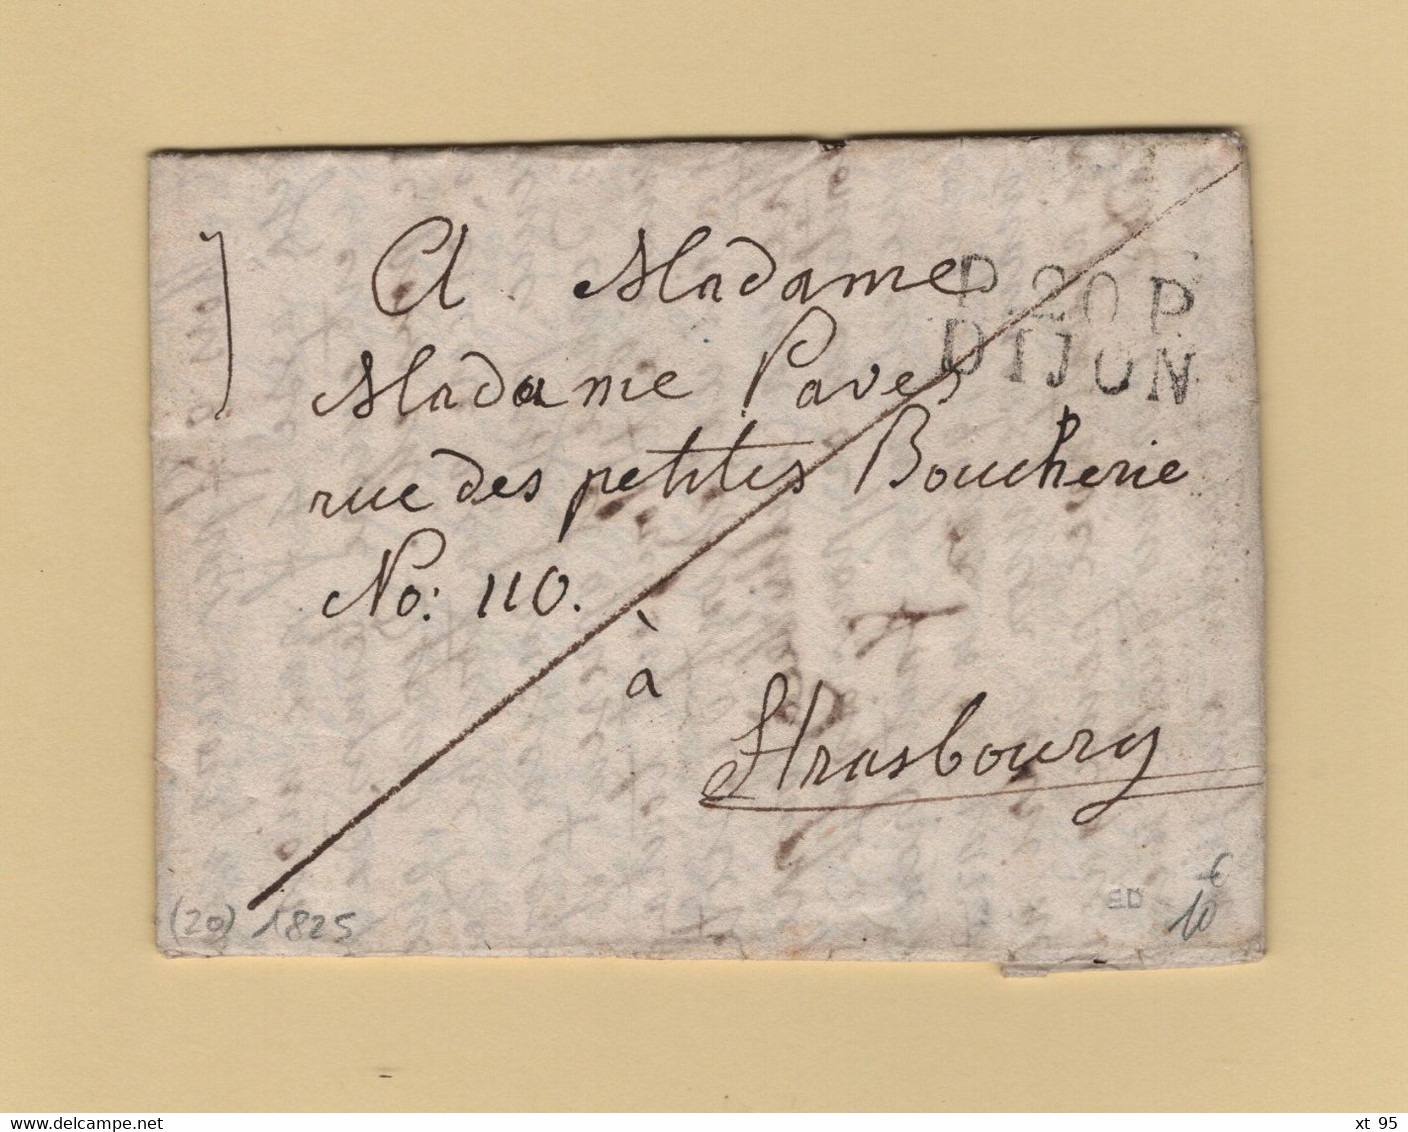 A Madame
P.20.P
DIJON
Madame Paves
rue des petites Boucherie
No: 110.
à
Strasbourg
(20) 1825
ED
10 €
www.delcampe.net
xt 95